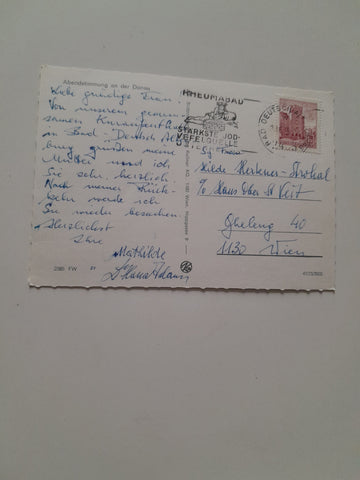 Abendstimmung an der Donau
Liebe gnädige Frau!
Von unserem gemein-
samen Kuraufenthalt
in Bad-Deutsch Alten-
burg grüßen meine
Mutter und ich
Sie sehr herzlich.
Nach meiner Rück-
kehr werde ich
Sie wieder besuchen.
Herzlichst
Ihre
Mathilde
RHEUMABAD
STÄRKSTE JOD-
SCHWEFELQUELLE
BAD DEUTSCH
Frau
c/o Haus Ober St Veit
40
1130 Wien
2380 FW
4173/502